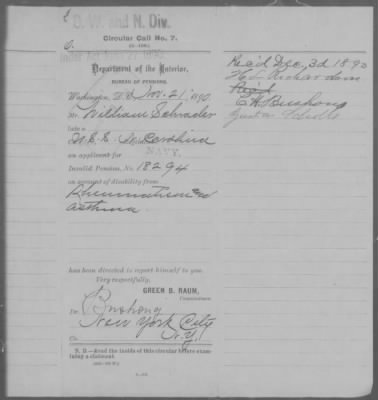 D. W. and N. Div.
Circular Call No. 7.
Department of the Interior,
BUREAU OF PENSIONS,
Washington, D.C. Nov. 21, 1890.
Mr. William Schrader
late a
U.S.S. North Carolina
an applicant for
NAVY.
Invalid Pension, No. 18294
on account of disability from
Rheumatism and
asthma.
has been directed to report himself to you.
Very respectfully,
GREEN B. RAUM,
Commissioner.
Dr. Bushong
New York City
N.Y.
N. B.—Read the inside of this circular before exam-
ining a claimant.
Rec'd Dec. 3d 1890
Richardson
Read
Bushong